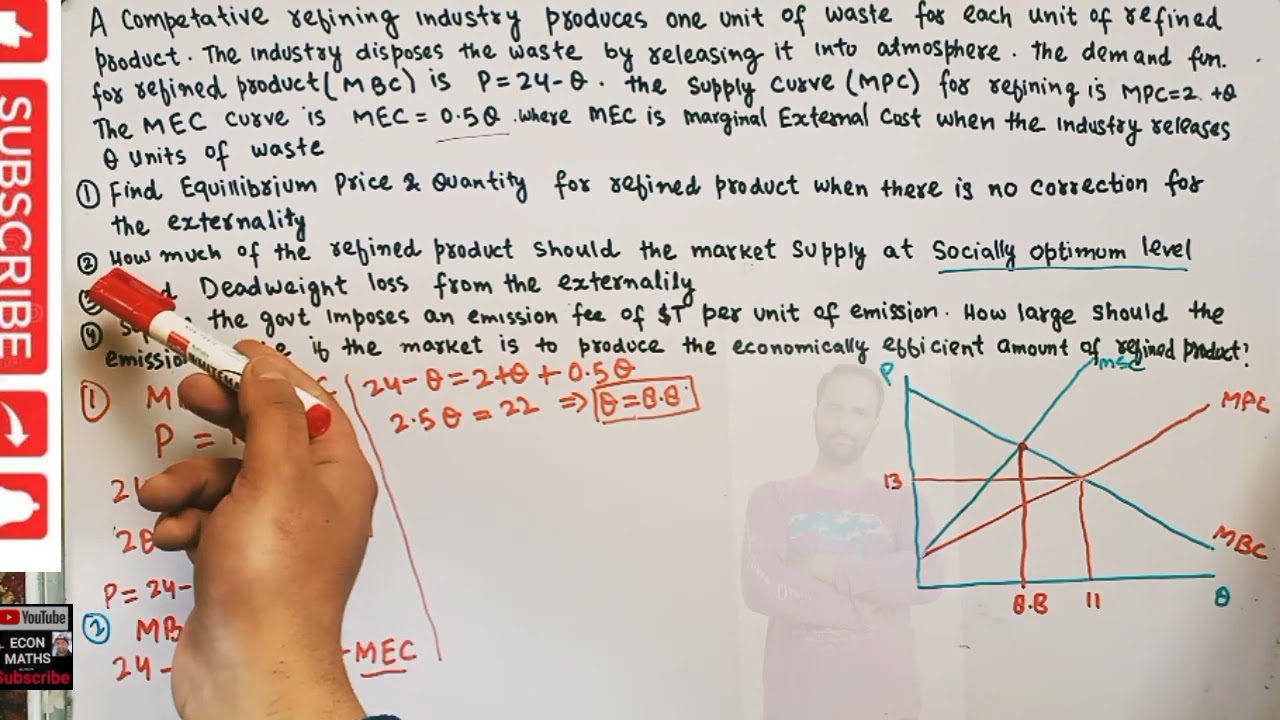 A Competative refining industry produces one unit of waste for each unit of refined
product. The industry disposes the waste by releasing it into atmosphere. The demand fun.
for refined product (MBC) is P=24-Q. The Supply Curve (MPC) for refining is MPC=2 +Q
The MEC Curve is MEC = 0.5Q. where MEC is marginal External Cost when the industry releases
Q units of waste
① Find Equillibrium Price & Quantity for refined product when there is no correction for
the externality
② How much of the refined product should the market Supply at Socially optimum level
③ Deadweight loss from the externality
④ the govt imposes an emission fee of $T per unit of emission. How large should the
emission if the market is to produce the economically efficient amount of refined product?
①
P =
2Q
P = 24-
② MB
24 - MEC
24-Q = 2+Q + 0.5Q
2.5Q = 22 ⇒ Q = 8.8
P
MSC
MPC
13
MBC
8.8
11
Q
SUBSCRIBE
YouTube
ECON
MATHS
Subscribe